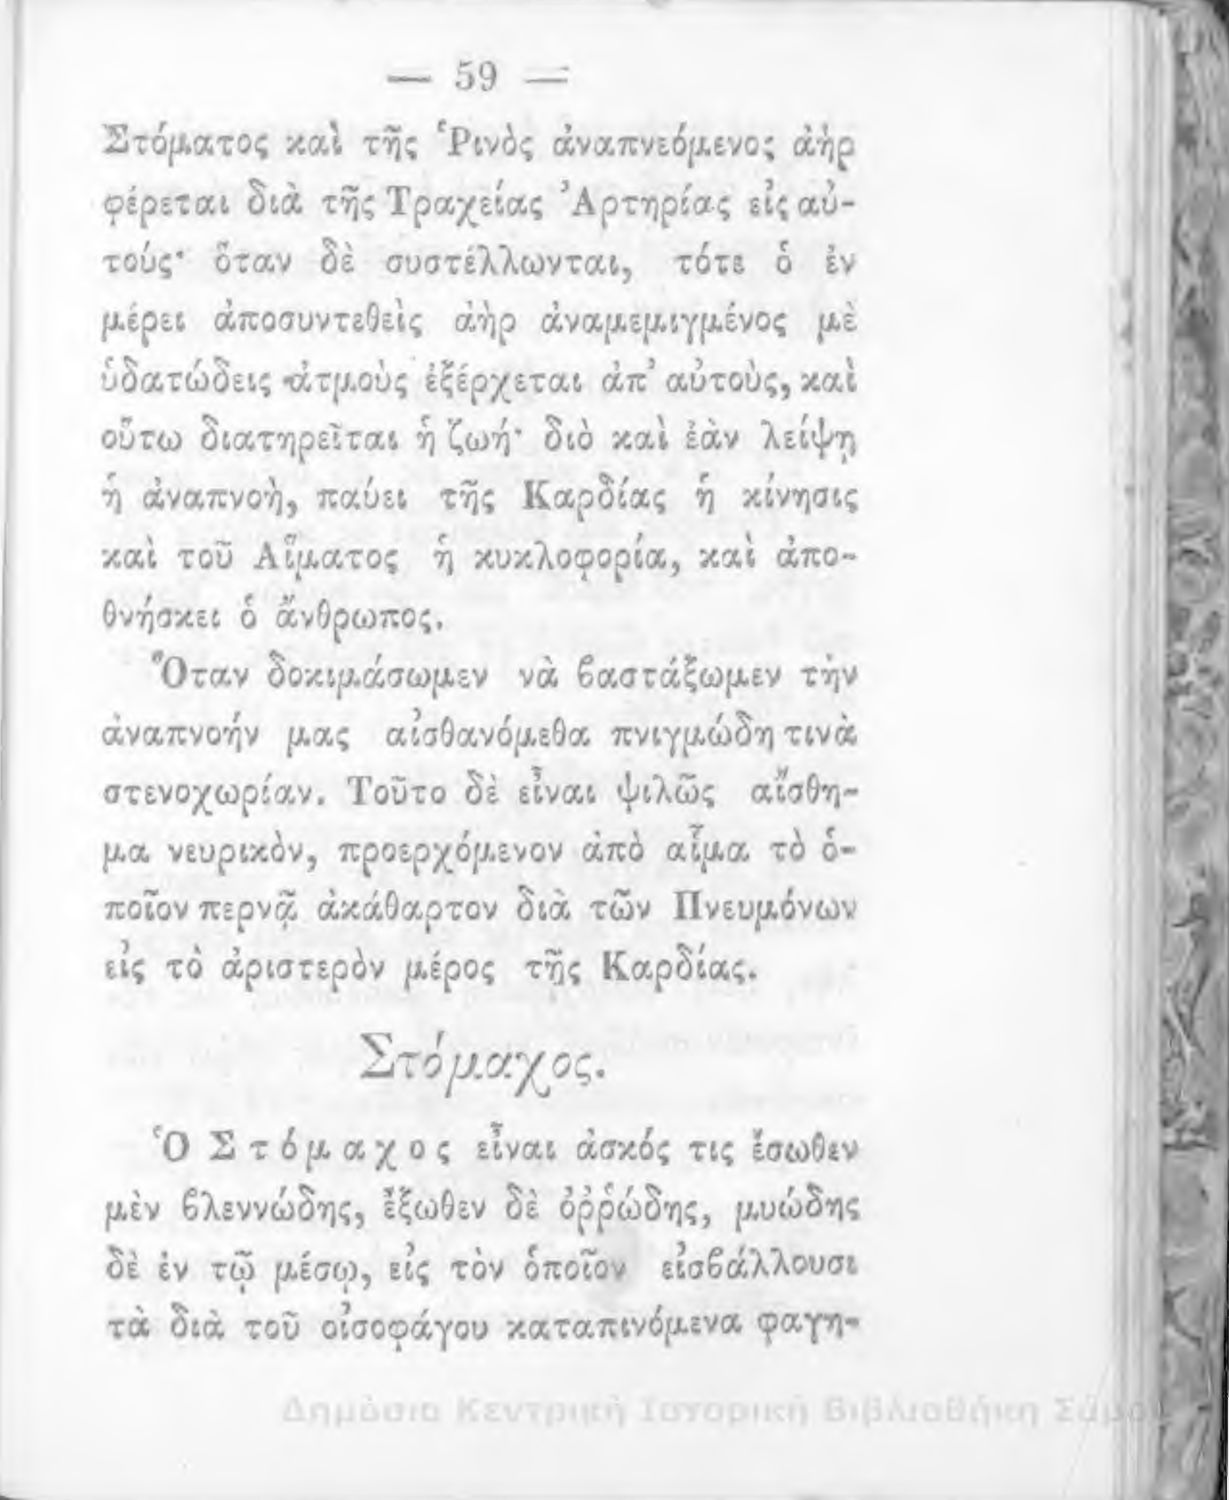 — 59 —
Στόματος καὶ τῆς Ῥινὸς ἀναπνεόμενος ἀὴρ
φέρεται διὰ τῆς Τραχείας Ἀρτηρίας εἰς αὐ-
τούς· ὅταν δὲ συστέλλωνται, τότε ὁ ἐν
μέρει ἀποσυντεθεὶς ἀὴρ ἀναμεμιγμένος μὲ
ὑδατώδεις ἀτμοὺς ἐξέρχεται ἀπ’ αὐτοὺς, καὶ
οὕτω διατηρεῖται ἡ ζωή· διὸ καὶ ἐὰν λείψῃ
ἡ ἀναπνοὴ, παύει τῆς Καρδίας ἡ κίνησις
καὶ τοῦ Αἵματος ἡ κυκλοφορία, καὶ ἀπο-
θνήσκει ὁ ἄνθρωπος.
Ὅταν δοκιμάσωμεν νὰ ϐαστάξωμεν τὴν
ἀναπνοήν μας αἰσθανόμεθα πνιγμώδη τινὰ
στενοχωρίαν. Τοῦτο δὲ εἶναι ψιλῶς αἴσθη-
μα νευρικὸν, προερχόμενον ἀπὸ αἷμα τὸ ὁ-
ποῖον περνᾷ ἀκάθαρτον διὰ τῶν Πνευμόνων
εἰς τὸ ἀριστερὸν μέρος τῆς Καρδίας.
Στόμαχος.
Ὁ Στόμαχος εἶναι ἀσκός τις ἔσωθεν
μὲν ϐλεννώδης, ἔξωθεν δὲ ὀῤῥώδης, μυώδης
δὲ ἐν τῷ μέσῳ, εἰς τὸν ὁποῖον εἰσϐάλλουσι
τὰ διὰ τοῦ οἰσοφάγου καταπινόμενα φαγη-
Δημόσια Κεντρική Ιστορική Βιβλιοθήκη Σάμου